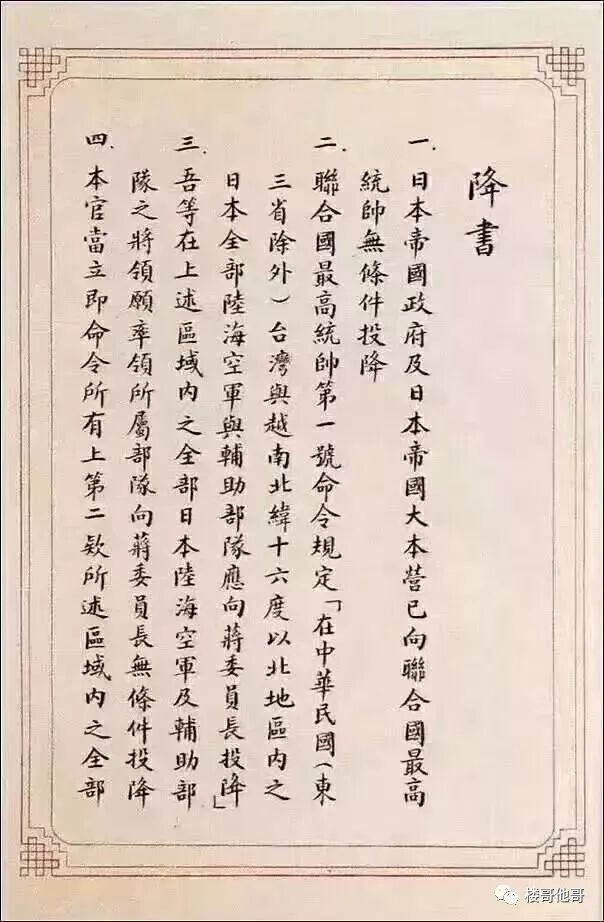 降書
一.日本帝國政府及日本帝國大本營已向聯合國最高
統帥無條件投降
二.聯合國最高統帥第一號命令規定「在中華民國(東
三省除外)台灣與越南北緯十六度以北地區內之
日本全部陸海空軍與輔助部隊應向蔣委員長投降」
三.吾等在上述區域內之全部日本陸海空軍及輔助部
隊之將領願率領所屬部隊向蔣委員長無條件投降
四.本官當立即命令所有上第二欵所述區域內之全部
楼哥他哥